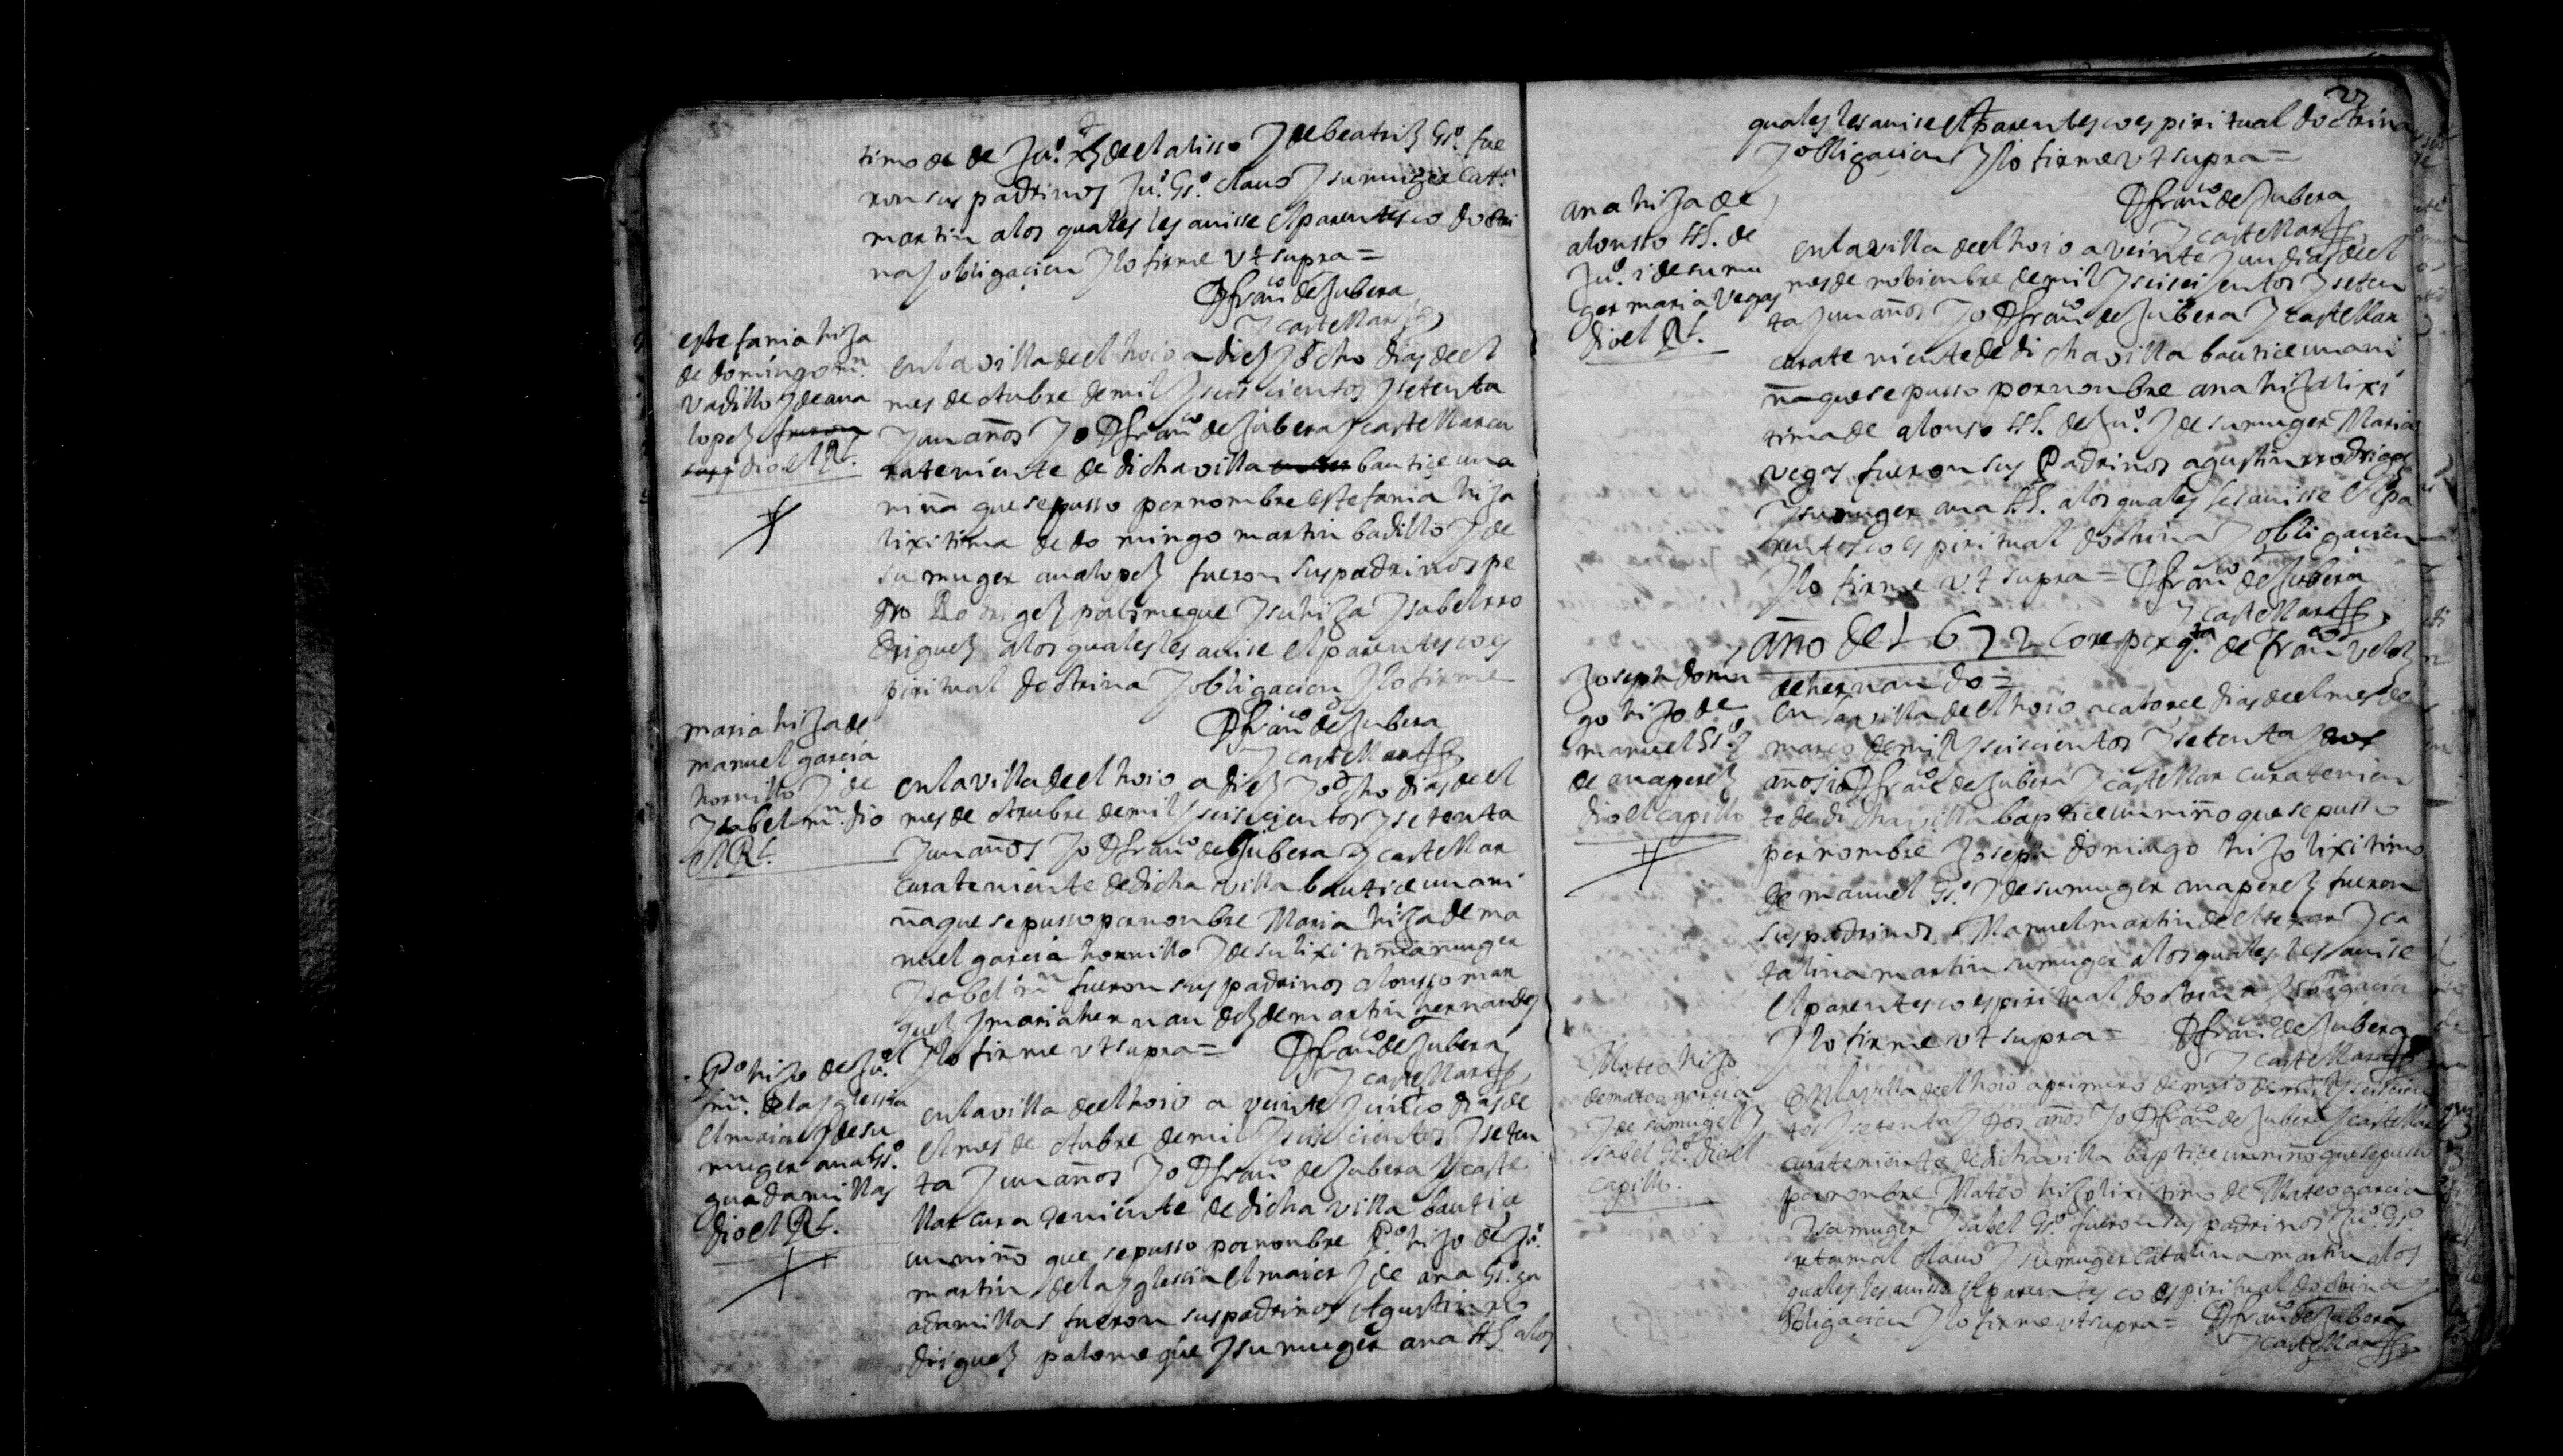 timo de de Juº. Rs de el alisso J de beatriz Gsº. fue
ron sus padrinos Juº. Gsº. clauo J su muger Catª
martin a los quales les auisse el parentesco dotri
na J obligacion J lo firme vt supra =
D franco de Jubera
J castellar
estefania hija
de domingo mn.
vadillo J de ana
lopez fueron
sus dio el Rl.
en la villa de el hoio a diez J ocho dias de el
mes de otubre de mil J seiscientos J setenta
J un años Jo D franco de Jubera J castellar cu
rateniente de dicha villa bautice una
niña que se pusso por nombre estefania hija
lixitima de do mingo martin badillo J de
su muger ana lopez fueron sus padrinos pe
dro Rodrigez palomeque J su hija Jsabel rro
driguez a los quales les auise el parentesco es
piritual dotrina J obligacion J lo firme
D franco de Jubera
J castellar
maria hija de
manuel garcia
hornillo J de
Jsabel mn. dio
el Rl.
en la villa de el hoio a diez J ocho dias de el
mes de otrubre de mil J seiscientos J setenta
J un años Jo D franco de Jubera J castellar
curateniente de dicha villa bautice una ni
ña que se pusso por nonbre Maria hija de ma
nuel garcia hornillo J de su lixitima muger
Jsabel mn fueron sus padrinos alonsso mar
quez J maria hernandez de martin hernandez
J lo firme vt supra = D franco de Jubera
J castellar
Pº hijo de Juº.
mn. de la Jglesia
el maior J de su
muger ana Gsº.
guadamillas
dio el Rl.
en la villa de el hoio a veinte J cinco dias de
el mes de otubre de mil J seiscientos J seten
ta J un años Jo D franco de Jubera J caste
llar cura teniente de dicha villa bautice
un niño que se pusso por nonbre Pº hijo de Juº.
martin de la Jglesia el maior J de ana Gsº. gu
adamillas fueron sus padrinos Agustin ro
driguez palomeque J su muger ana HS. a los
quales les auise el parentesco espiritual doctrina
J obligacion J lo firme vt supra =
D franco de Jubera
J castellar
ana hija de
alonsso HS. de
Juº. i de su mu
ger maria Vegas
dio el Rl.
en la villa de el hoio a veinte J un dias de el
mes de nobienbre de mil J seiscientos J seten
ta J un años Jo D franco de Jubera J castellar
curateniente de dicha villa bautice una ni
ña que se pusso por nonbre ana hija lixi
tima de alonso HS. de Juº. J de su muger Maria
vegas fueron sus Padrinos agustin rrodrigez
J su muger ana HS. a los quales les auisse el pa
rentesco espiritual dotrina J obligacion
J lo firme vt supra = D franco de Jubera
J castellar
año de 1672 de franco velez
de hernando =
Joseph domin
go hijo de
manuel Gsº. J
de ana perez
dio el capillo
en la villa de el hoio a catorce dias de el mes de
março de mil J seiscientos J setenta J dos
años io D franco de Jubera J castellar curatenien
te de dicha villa baptice un niño que se pusso
por nombre Joseph domingo hijo lixitimo
de manuel Gsº. J de su muger ana perez fueron
sus padrinos Manuel martin de el texar J ca
talina martin su muger a los quales les auise
el parentesco espiritual dotrina J obligacion
J lo firme vt supra = D franco de Jubera
J castellar
Mateo hijo
de mateo garcia
J de su muger J
sabel Gsº. dio el
capillo.
En la villa de el hoio a primero de maio de mil J seiscien
tos J setenta J dos años Jo D franco de Jubera J castellar
curateniente de dicha villa baptice un niño que se pusso
por nonbre Mateo hijo lixitimo de Mateo garcia
J su muger Jsabel Gsº. fueron sus padrinos Juº. Gsº.
retamal clauo J su muger Catalina martin a los
quales les auisse el parentesco espiritual dotrina J
obligacion J lo firme vt supra = D franco de Jubera
J castellar